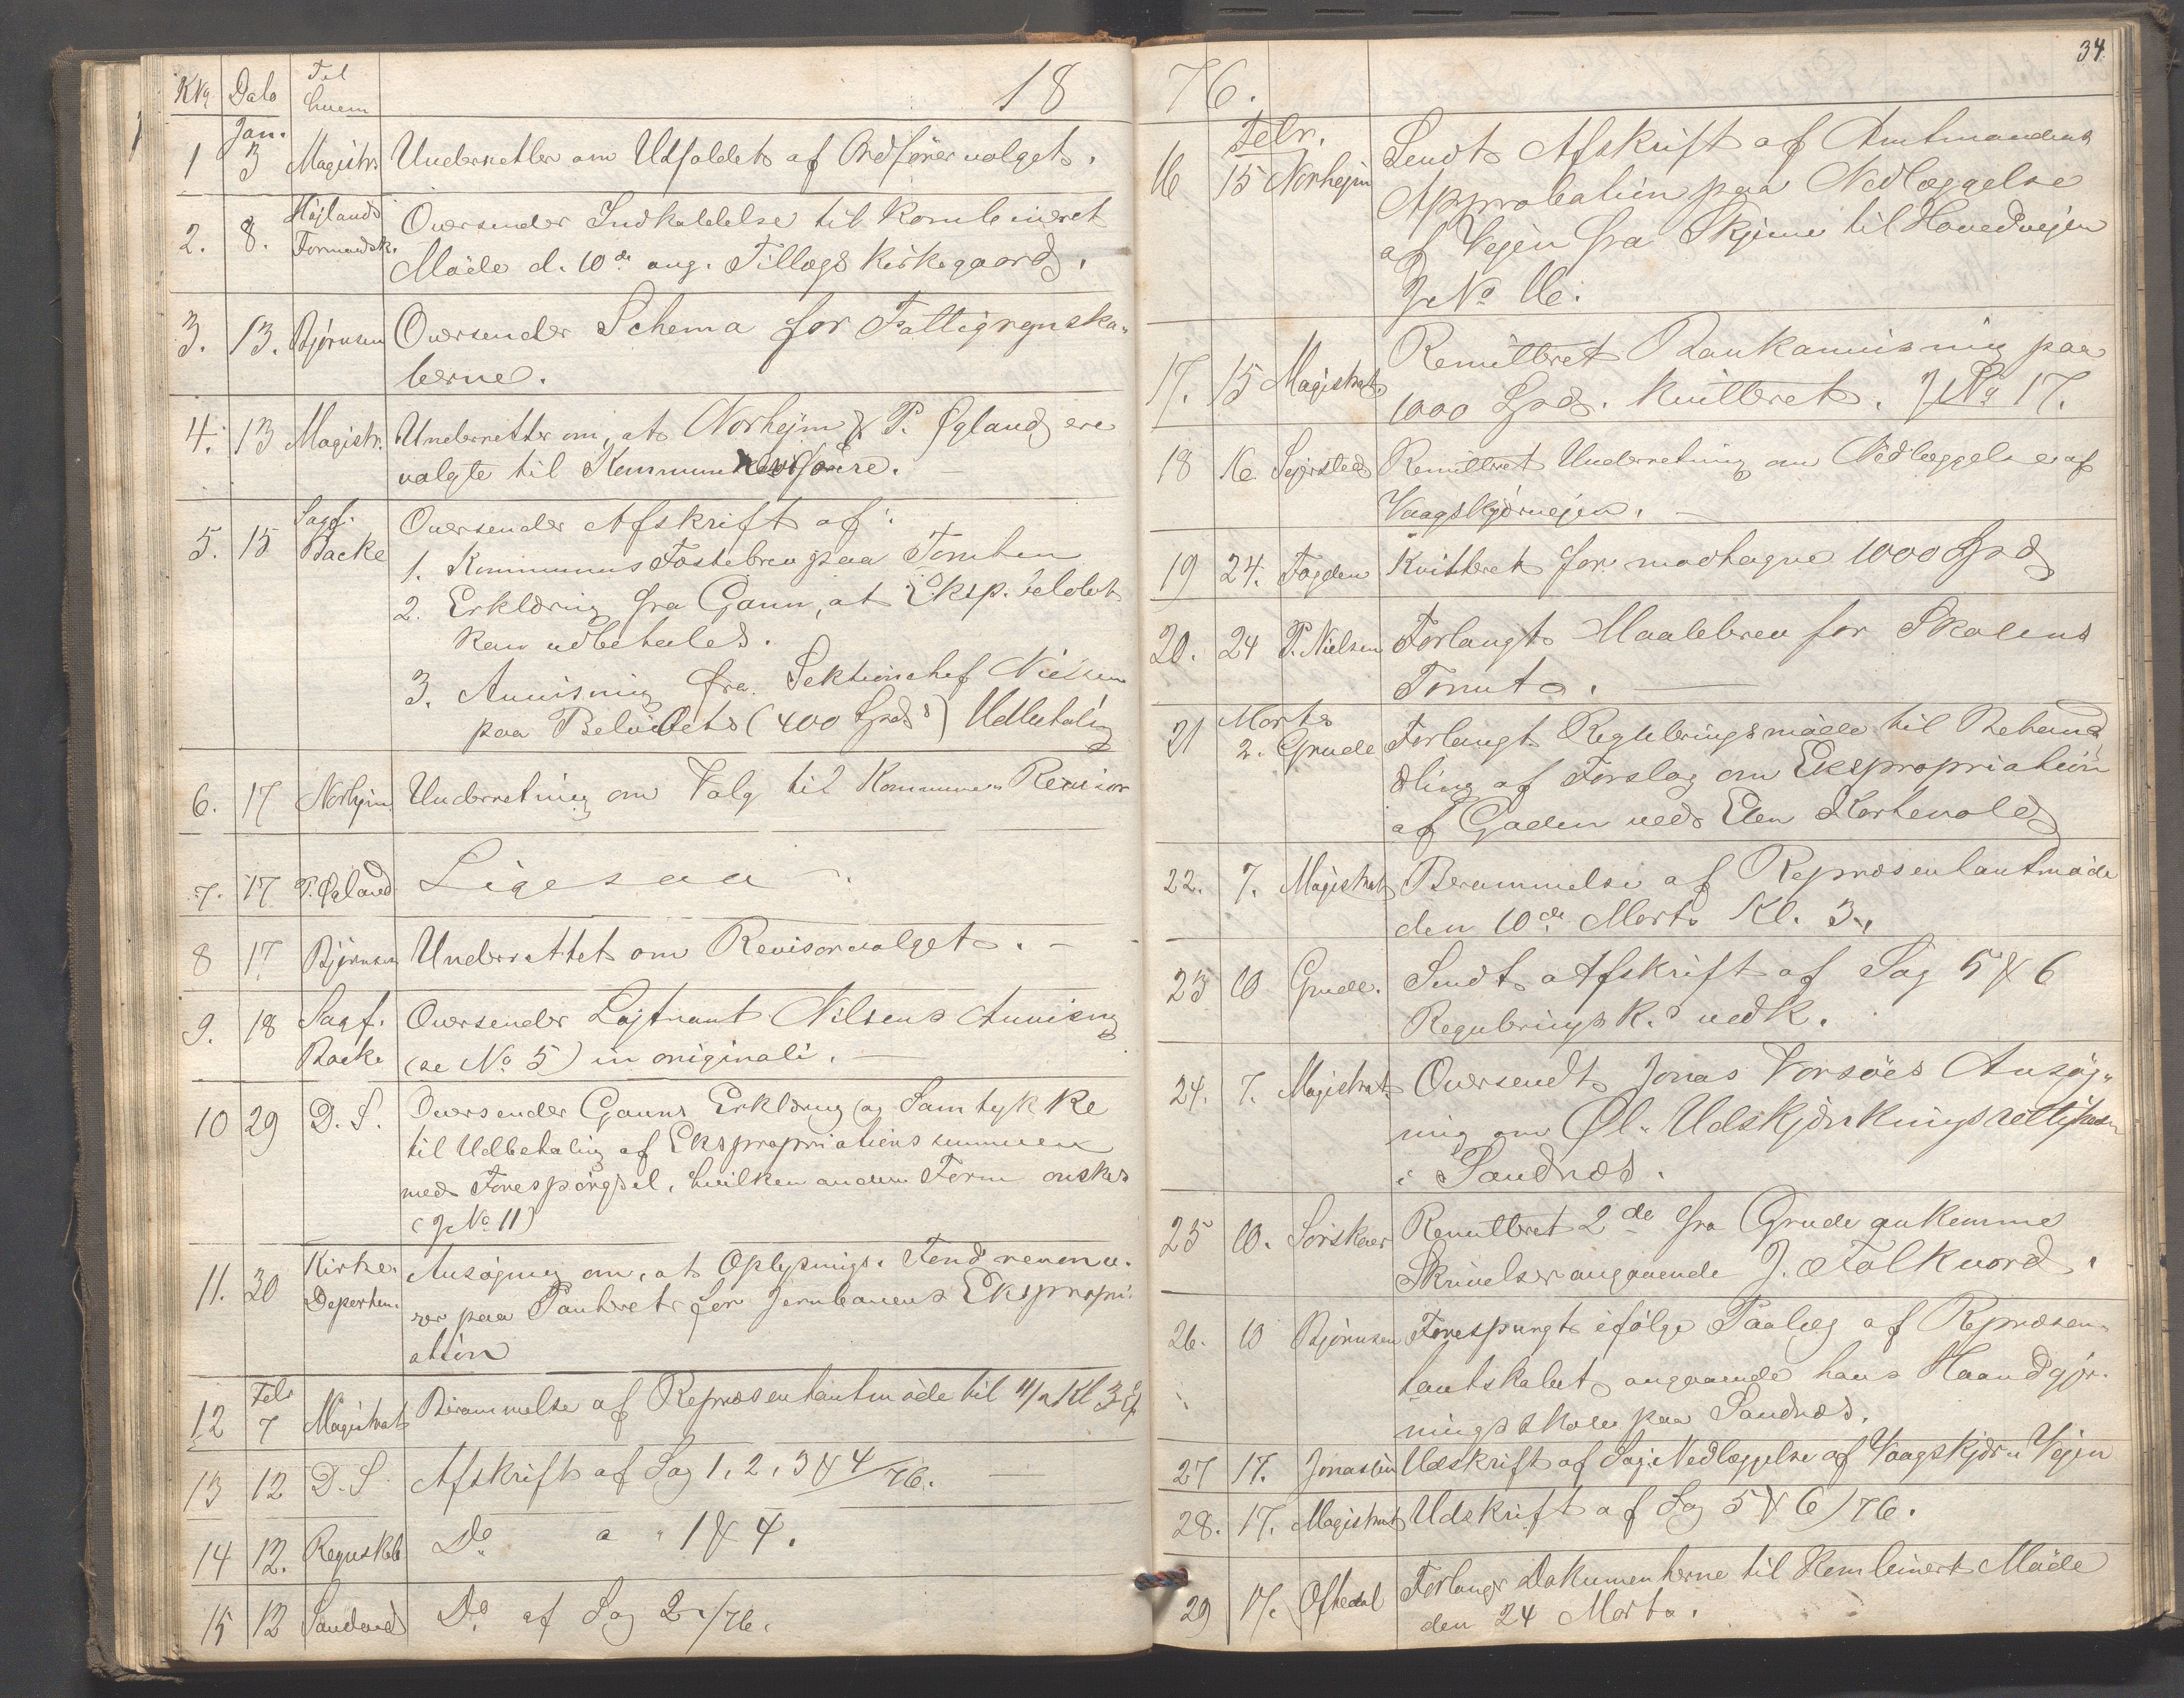 KNo Dato Til hvem 18
Jan.
1 3 Magistr. Underretter om Udfaldet af Ordførervalget.
2. 8. Højlands Formandsk. Oversender Indkaldelse til kombineret
Møde d. 10de ang. Tillægs kirkegaard.
3. 13. Bjørnsen Oversender Schema for Fattigregnska-
berne.
4. 13 Magistr. Underretter om, at Norhejm & P. Øgland ere
valgte til Kommunerevisorere.
5. 15 Sagf. Backe Oversender Afskrift af:
1. Kommunens Fæstebrev paa Tomten
2. Erklæring fra Gann, at Eksp. beløbet
kan udbetales.
3. Anvisning fra Sektionschef Nielsen
paa Beløbets (400 Spd) Udbetaling
6. 17 Norhejm Underretning om Valg til Kommune Revisor
7. 17 P. Øgland Ligesaa
8 17 Bjørnsen Underrettet om Revisorvalget.
9. 18 Sagf. Backe Oversender Løjtnant Nilsens Anvisng
(se No 5) in originali.
10 29 D. S. Oversender Ganns Erklæring og Samtykke
til Udbetaling af Ekspropriationssummen
med Forespørgsel, hvilken anden Form ønskes
(J No 11)
11. 30 Kirke Departem. Ansøgning om, at Oplysnings. Fond
paa Pantet for Jernbanens Ekspropri-
ation
Feb
12 7 Magistrat Berammelse af Repræsentantmøde til 11/2 Kl 3
13 12 D. S. Afskrift af Sag 1, 2, 3 & 4/76.
14 12. Regnskab Do a " 1 & 4.
15 12 Sandnes Do af Sag 2/76.
76. 34.
Febr.
16 15 Norhejm Sendt Afskrift af Amtmandens
Approbation paa Nedlæggelse
af Vejen fra Skjæve til Hovedvejen
J No 16.
17. 15 Magistrat Remitteret Bankanvisning paa
1000 Spd. kvitteret. J No 17.
18 16 Sejersted Remitteret Underretning om Nedlæggelse af
Vaagskjærvejen.
19 24. Fogden Kvitteret for modtagne 1000 Spd
20. 24 P. Nielsen Forlangt Maalebrev for Skolens
Tomt.
Marts
21 2. Grude Forlangt Reguleringsmøde til Behand
dling af Forslag om Ekspropriation
af Gaden ved Elen Kortevold
22. 7. Magistrat Berammelse af Repræsentantmøde
den 10de Marts Kl. 3.
23 10 Grude. Sendt Afskrift af Sag 5 & 6
Regulerings K. vedk.
24. 7. Magistrat Oversendt Jonas Vorsøes Ansøg-
ning om Øl-Udskjænkningsrettigheden
i Sandnæs.
25 10. Sörskaar Remitteret 2de fra Grude ankomne
Skrivelser angaaende J. Folkvord.
26. 10 Bjørnsen Forespurgt ifølge Paalæg af Repræsen-
tantskabet angaaende hans Haandgjer-
ningsskole paa Sandnæs.
27 17. Jonassen Udskrift af Sag: Nedlæggelse af Vaagskjær Vejen
28. 17. Magistrat Udskrift af Sag 5 & 6/76.
29 17. Oftedal Forlanger Dokumenterne til Kombineret Møde
den 24 Marts.